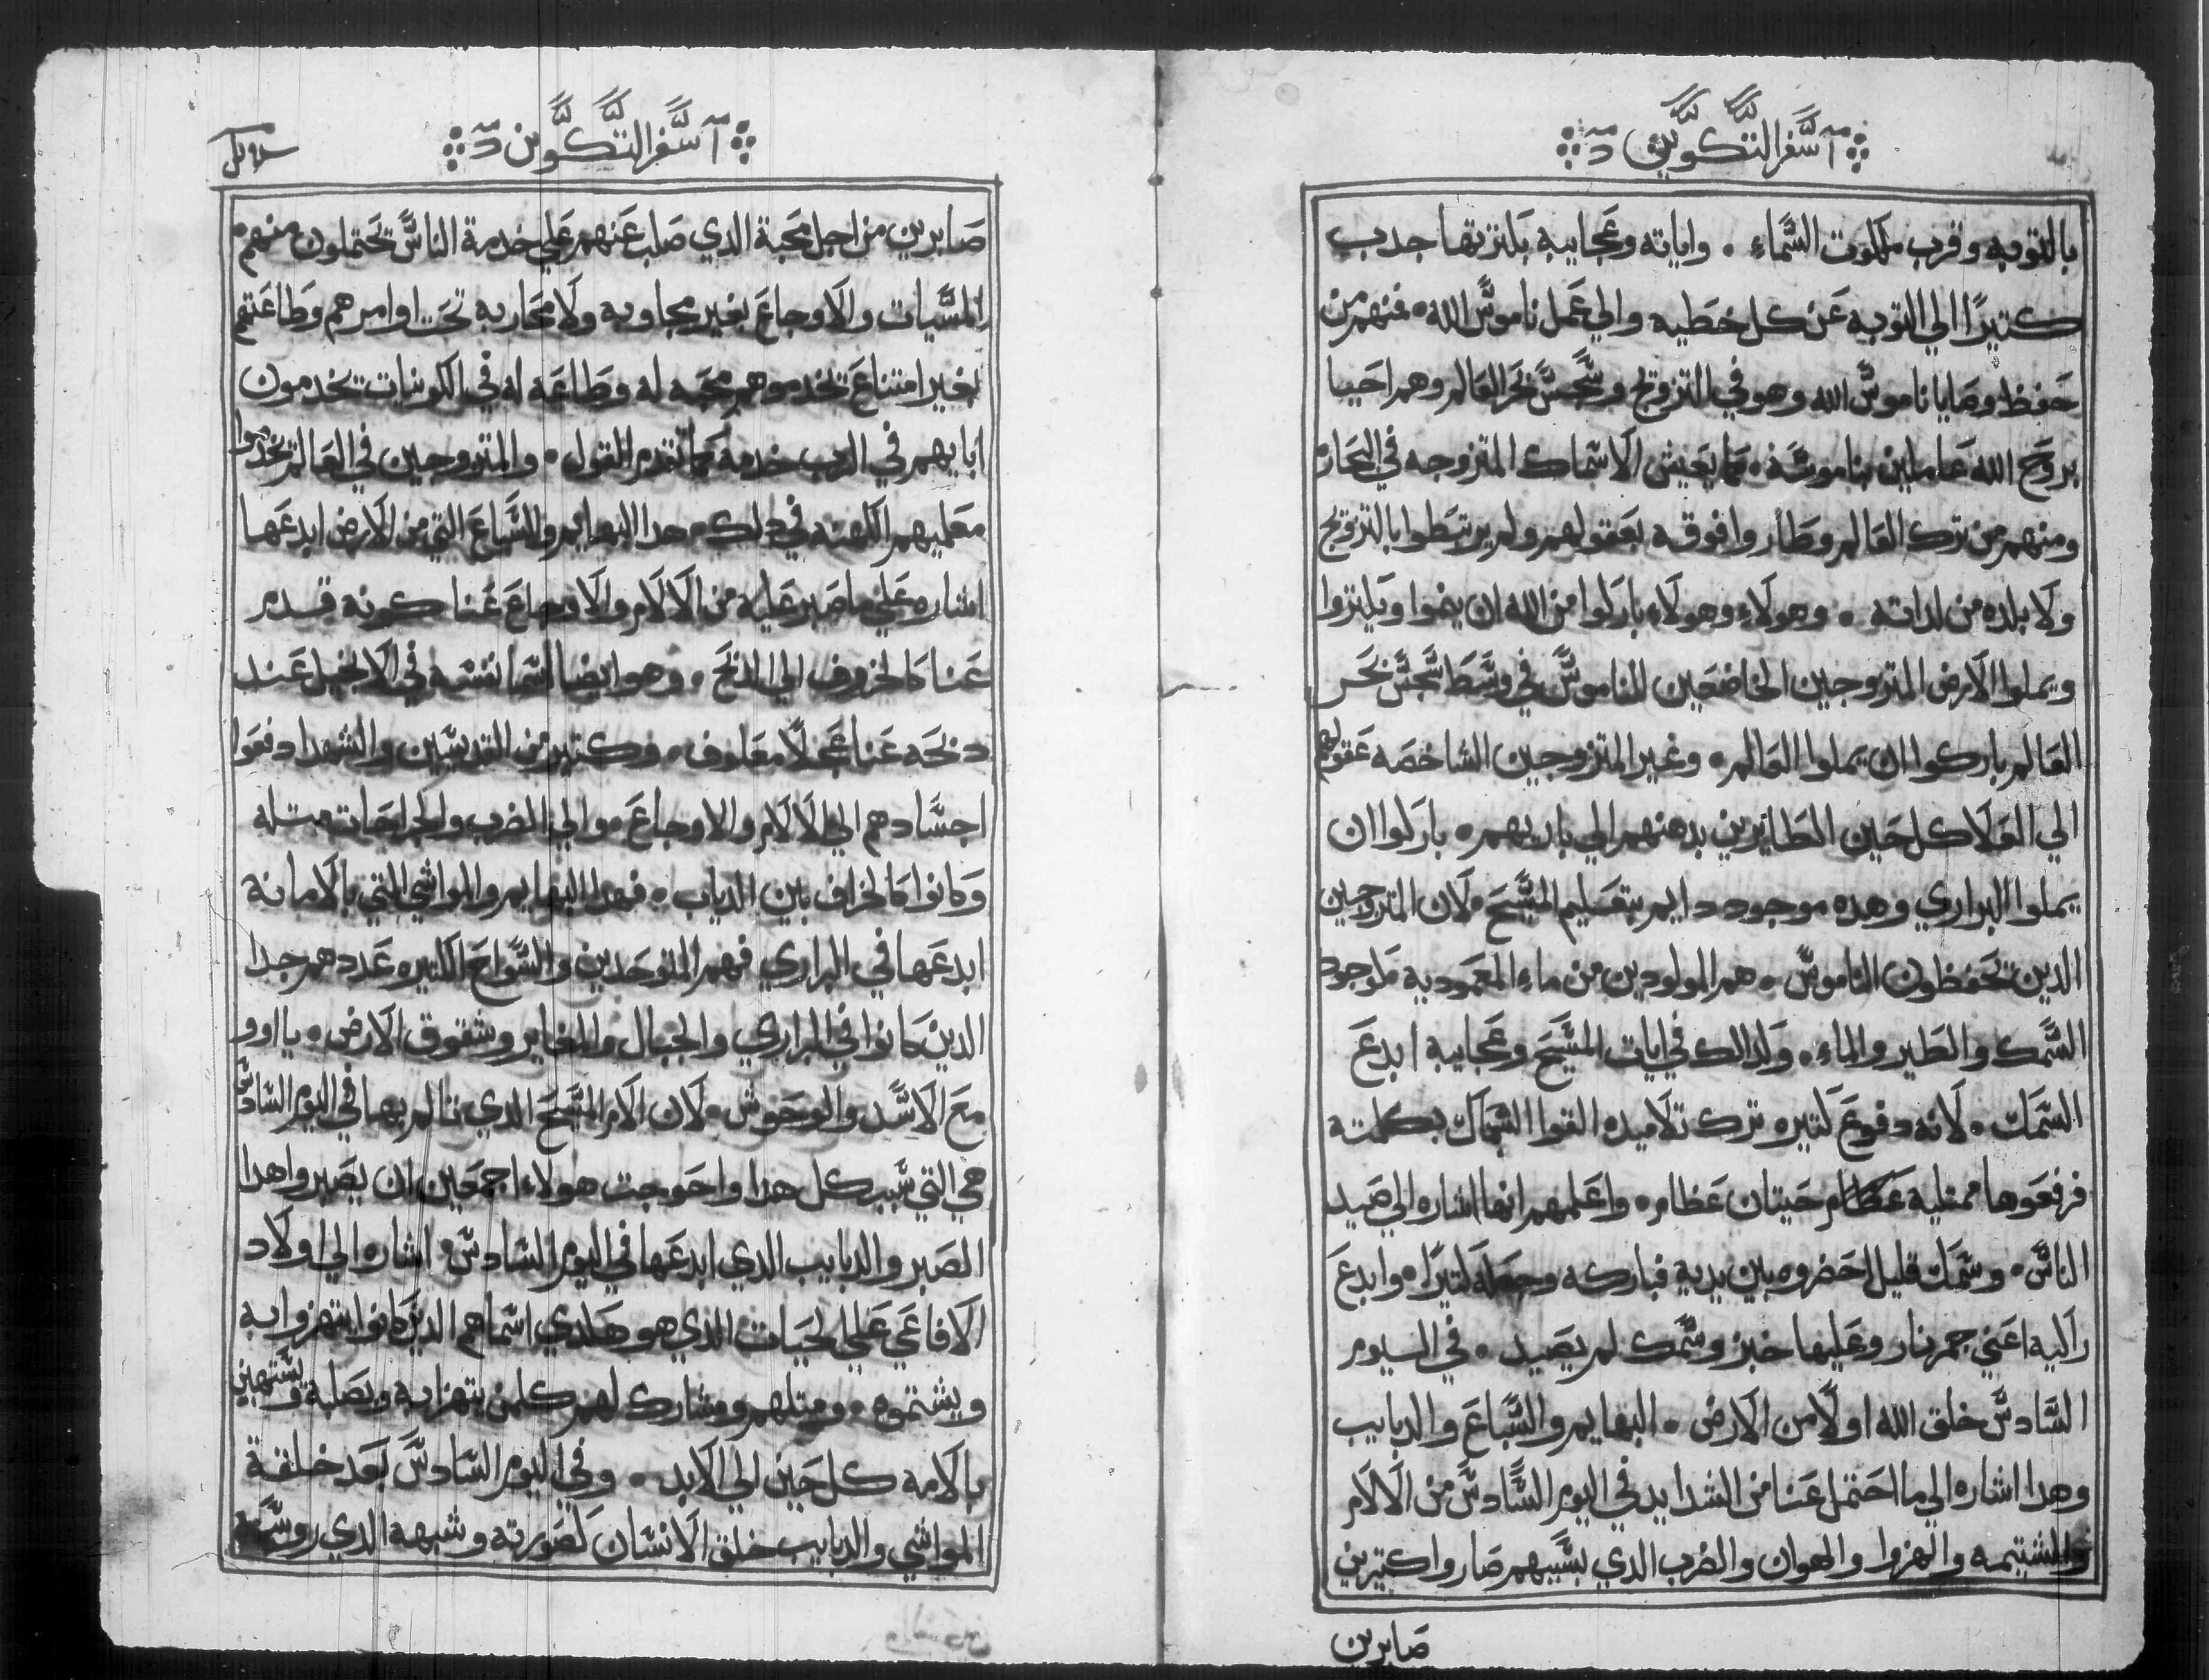 ا سفر التكوين
بالتوبه وقرب ملكوت السماء . واياته وعجايبه بكترتها جدب
كتيرًا الي التوبه عن كل خطيه والي عمل ناموس الله . فنهم من
حفظ وصايا ناموس الله وهو في التزويج وسجس بحر العالم وهم احيا
بروح الله عاملين بناموسه . كما يعيش الاسماك المتزوجه في البحار
ومنهم من ترك العالم وطاروا فوقه بعقولهم ولم يرتبطوا بالتزويج
ولا بلده من لداته . وهولاء وهولاء باركوا من الله ان ينموا ويكتروا
ويملوا الارض المتزوجين الخاضعين للناموس في وسط سجس بحر
العالم باركوا ان يملوا العالم . وغير المتزوجين الشاخصه عقولهم
الي العلا كل حين الطايرين بدهنهم الي باريهم . باركوا ان
يملوا البراري وهده موجود دايم بتعليم المسيح . لان المتزوجين
الدين يحفظون الناموس . هم المولودين من ماء المعموديه موجود
السمك والطير والماء . وكدالك في ايات المسيح وعجايبه ابدع
السمك . لانه دفوع كتيره ترك تلاميده القوا الشباك بكلمته
فرفعوها ممتليه عظام حيتان عظام . واعلمهم انها اشاره الي صيد
الناس . وسمك قليل احضروه بين يديه فباركه وجعله كتيرًا . وابدع
راكيه اعني جمر نار وعليها خبز وسمك لم يصيد . في اليوم
السادس خلق الله اولًا من الارض . البهايم والسباع والدبايب
وهدا اشاره الي ما احتمل عنا من الشدايد في اليوم السادس من الالام
والشتيمه والهزوا والهوان والضرب الدي بسببهم صاروا كتيرين
صابرين
ا سفر التكوين
صابرين من اجل محبة الدي صلب عنهم علي خدمة الناس يحتملون منهم .
المسيات والاوجاع بغير مجاوبه ولا محاربه تحت اوامرهم وطاعتهم
بغير امتناع يخدموهم محبه له وطاعه له في الكونيات يخدمون
ابايهم في الرب خدمة كما تقدم القول . والمتزوجين في العالم يخدموا
معلميهم الكهنه في دلك . هدا البهايم والسباع التي من الارض ابدعها
اشاره علي ما صبر عليه من الالام والاوجاع عنا كونه قدم
عنا كالخروف الي الدبح . وهو ايضا اسما نفسه في الانجيل عند
دبحه عنا عجلًا معلوف . وكتير من القديسين والشهدا دفعوا
اجسادهم الي الالام والاوجاع . والي الضرب والجراحات متله
وكانوا كالخراف بين الدياب . فهدا البهايم والمواشي التي بالامانة
ابدعها في البراري فهم المتوحدين والسواح الكتيره عددهم جدا
الدين كانوا في البراري والجبال والمغاير وشقوق الارض . ياووا
مع الاسد والوحوش . لان الام المسيح الدي تالم بها في اليوم السادس
هي التي سبب كل هدا واحوجت هولاء اجمعين ان يصبروا هدا
الصبر والدبايب الدي ابدعها في اليوم السادس اشاره الي اولاد
الافاعي علي الحيات الدي هو هكدي اسماهم الدين كانوا يتهزوا به
ويشتموه . ومتلهم ومشارك لهم كلمن يتهزا به وبصلبه ويستهين
بالامه كل حين الي الابد . وفي اليوم السادس بعد خلقة
المواشي والدبايب خلق الانسان كصورته وشبهه الدي